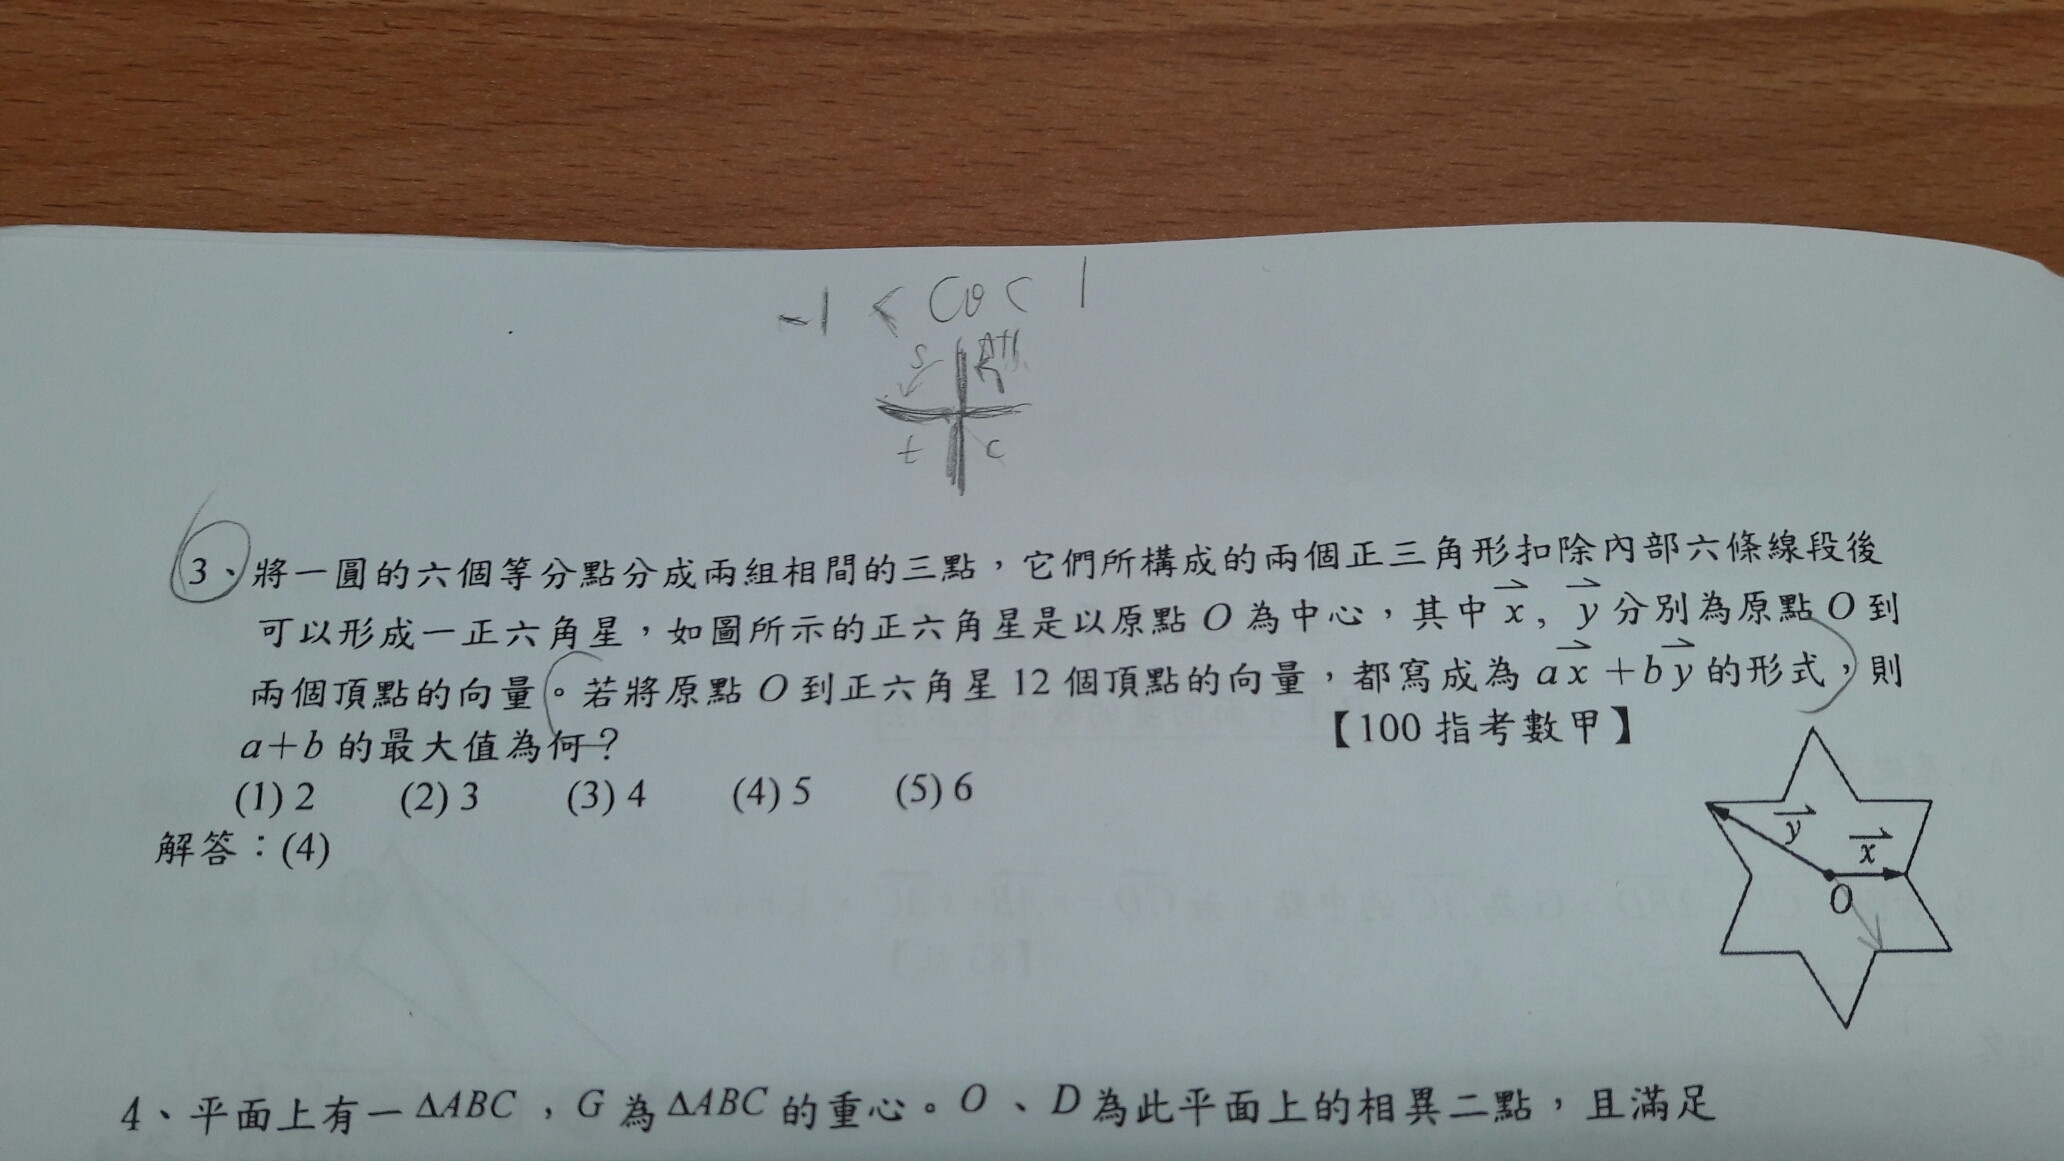 -1 < Cos 1
S All
t C
3、將一圓的六個等分點分成兩組相間的三點，它們所構成的兩個正三角形扣除內部六條線段後
可以形成一正六角星，如圖所示的正六角星是以原點 O 為中心，其中 x⃗, y⃗ 分別為原點 O 到
兩個頂點的向量。若將原點 O 到正六角星 12 個頂點的向量，都寫成為 ax⃗+by⃗ 的形式，則
a+b 的最大值為何？
【100 指考數甲】
(1) 2 (2) 3 (3) 4 (4) 5 (5) 6
解答：(4)
y⃗
x⃗
O
4、平面上有一 ΔABC，G 為 ΔABC 的重心。O、D 為此平面上的相異二點，且滿足